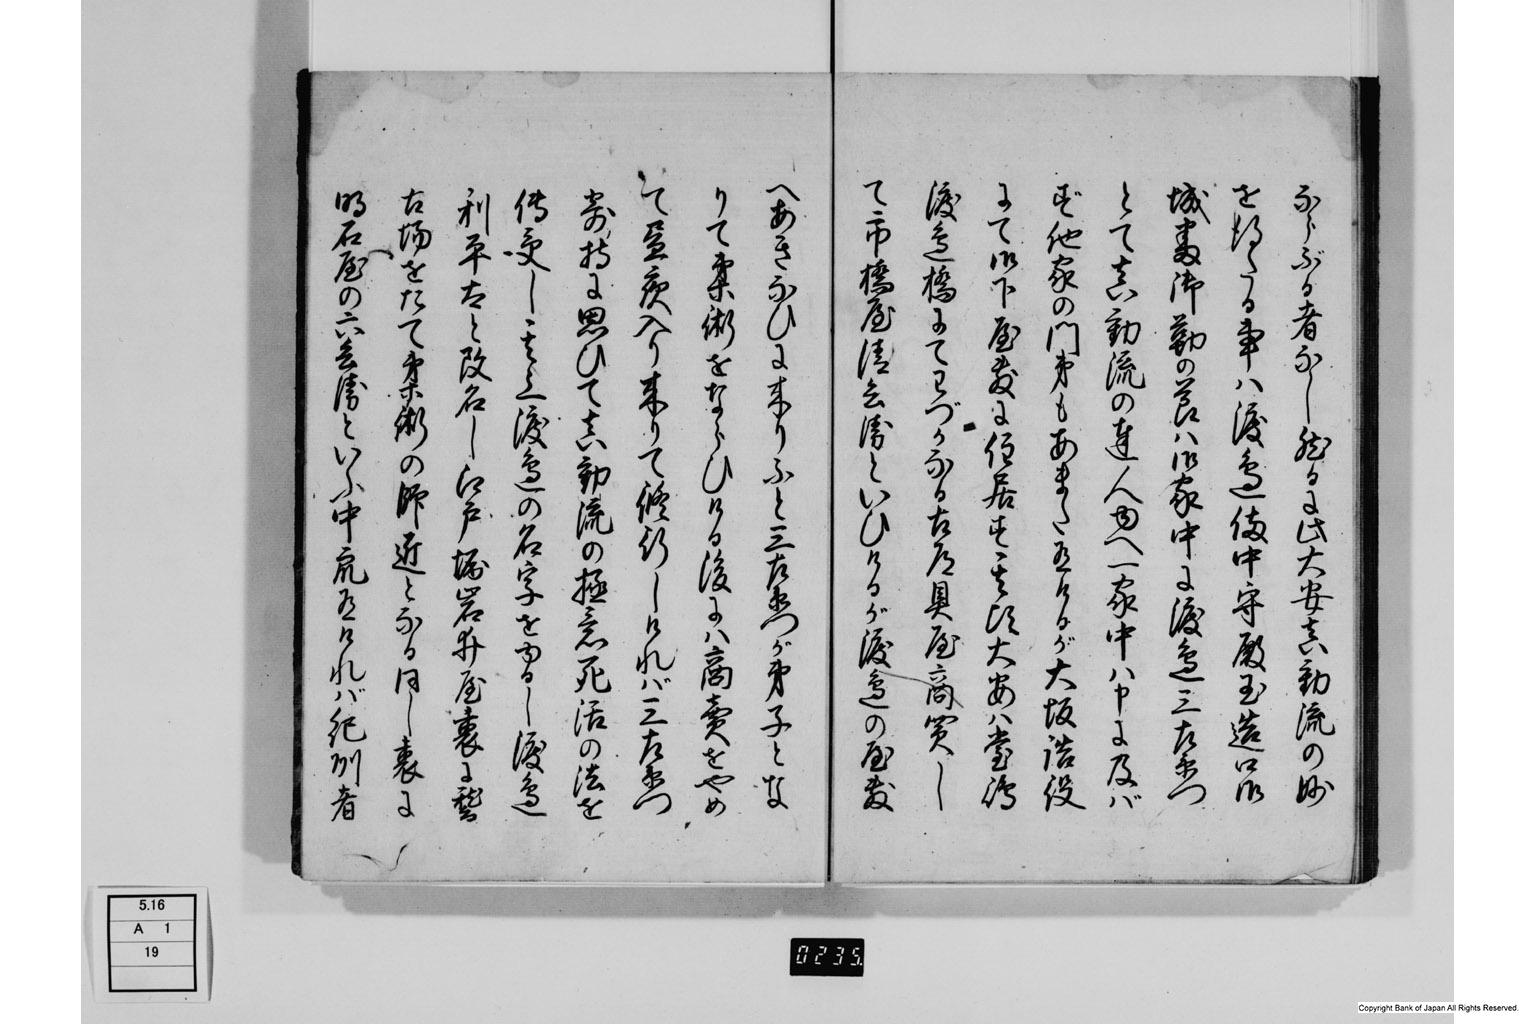 ならぶ者なし然るに此大安真勤流の妙
を得たる事ハ渡邉備中守殿玉造口御
城番御勤の節ハ御家中に渡邉三左衛門
とて真勤流の達人ゆへ一家中ハ申に及バ
ず他家の門弟もあまた有けるが大坂詰役
にて御下屋敷に住居す其頃大安ハ堂嶋
渡邉橋にてわづかなる古道具屋商買し
て市橋屋清兵衛といひけるが渡邉の屋敷
へあきなひに来りふと三左衛門が弟子とな
りて柔術をならひける後にハ商賣をやめ
て昼夜入り来りて修行しければ三左衛門
奇特に思ひて真勤流の極意死活の法を
傳受し其上渡邉の名字をゆるし渡邉
利平太と改名し江戸堀岩井屋裏に稽
古場をたて柔術の師匠となる同し裏に
明石屋の六兵衛といふ中衆有けれバ紀州者
5.16
A 1
19
0235
Copyright Bank of Japan All Rights Reserved.